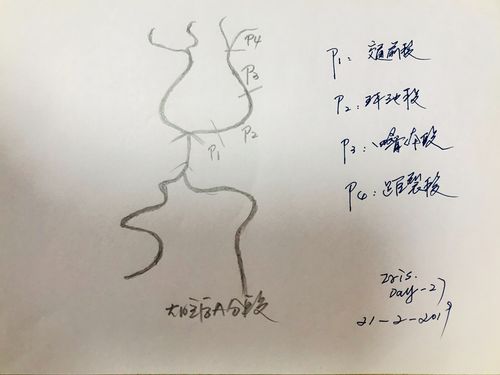 P4
P3
P2
P1
P1: 交通前段
P2: 环池段
P3: 四叠体段
P4: 距裂段
Iris.
Day-27
21-2-2019
大脑后A分段